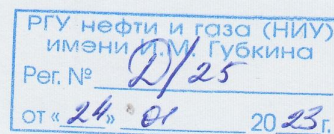 РГУ нефти и газа (НИУ)
имени И.М. Губкина
Рег. № Д/25
от «24» 01 2023г.